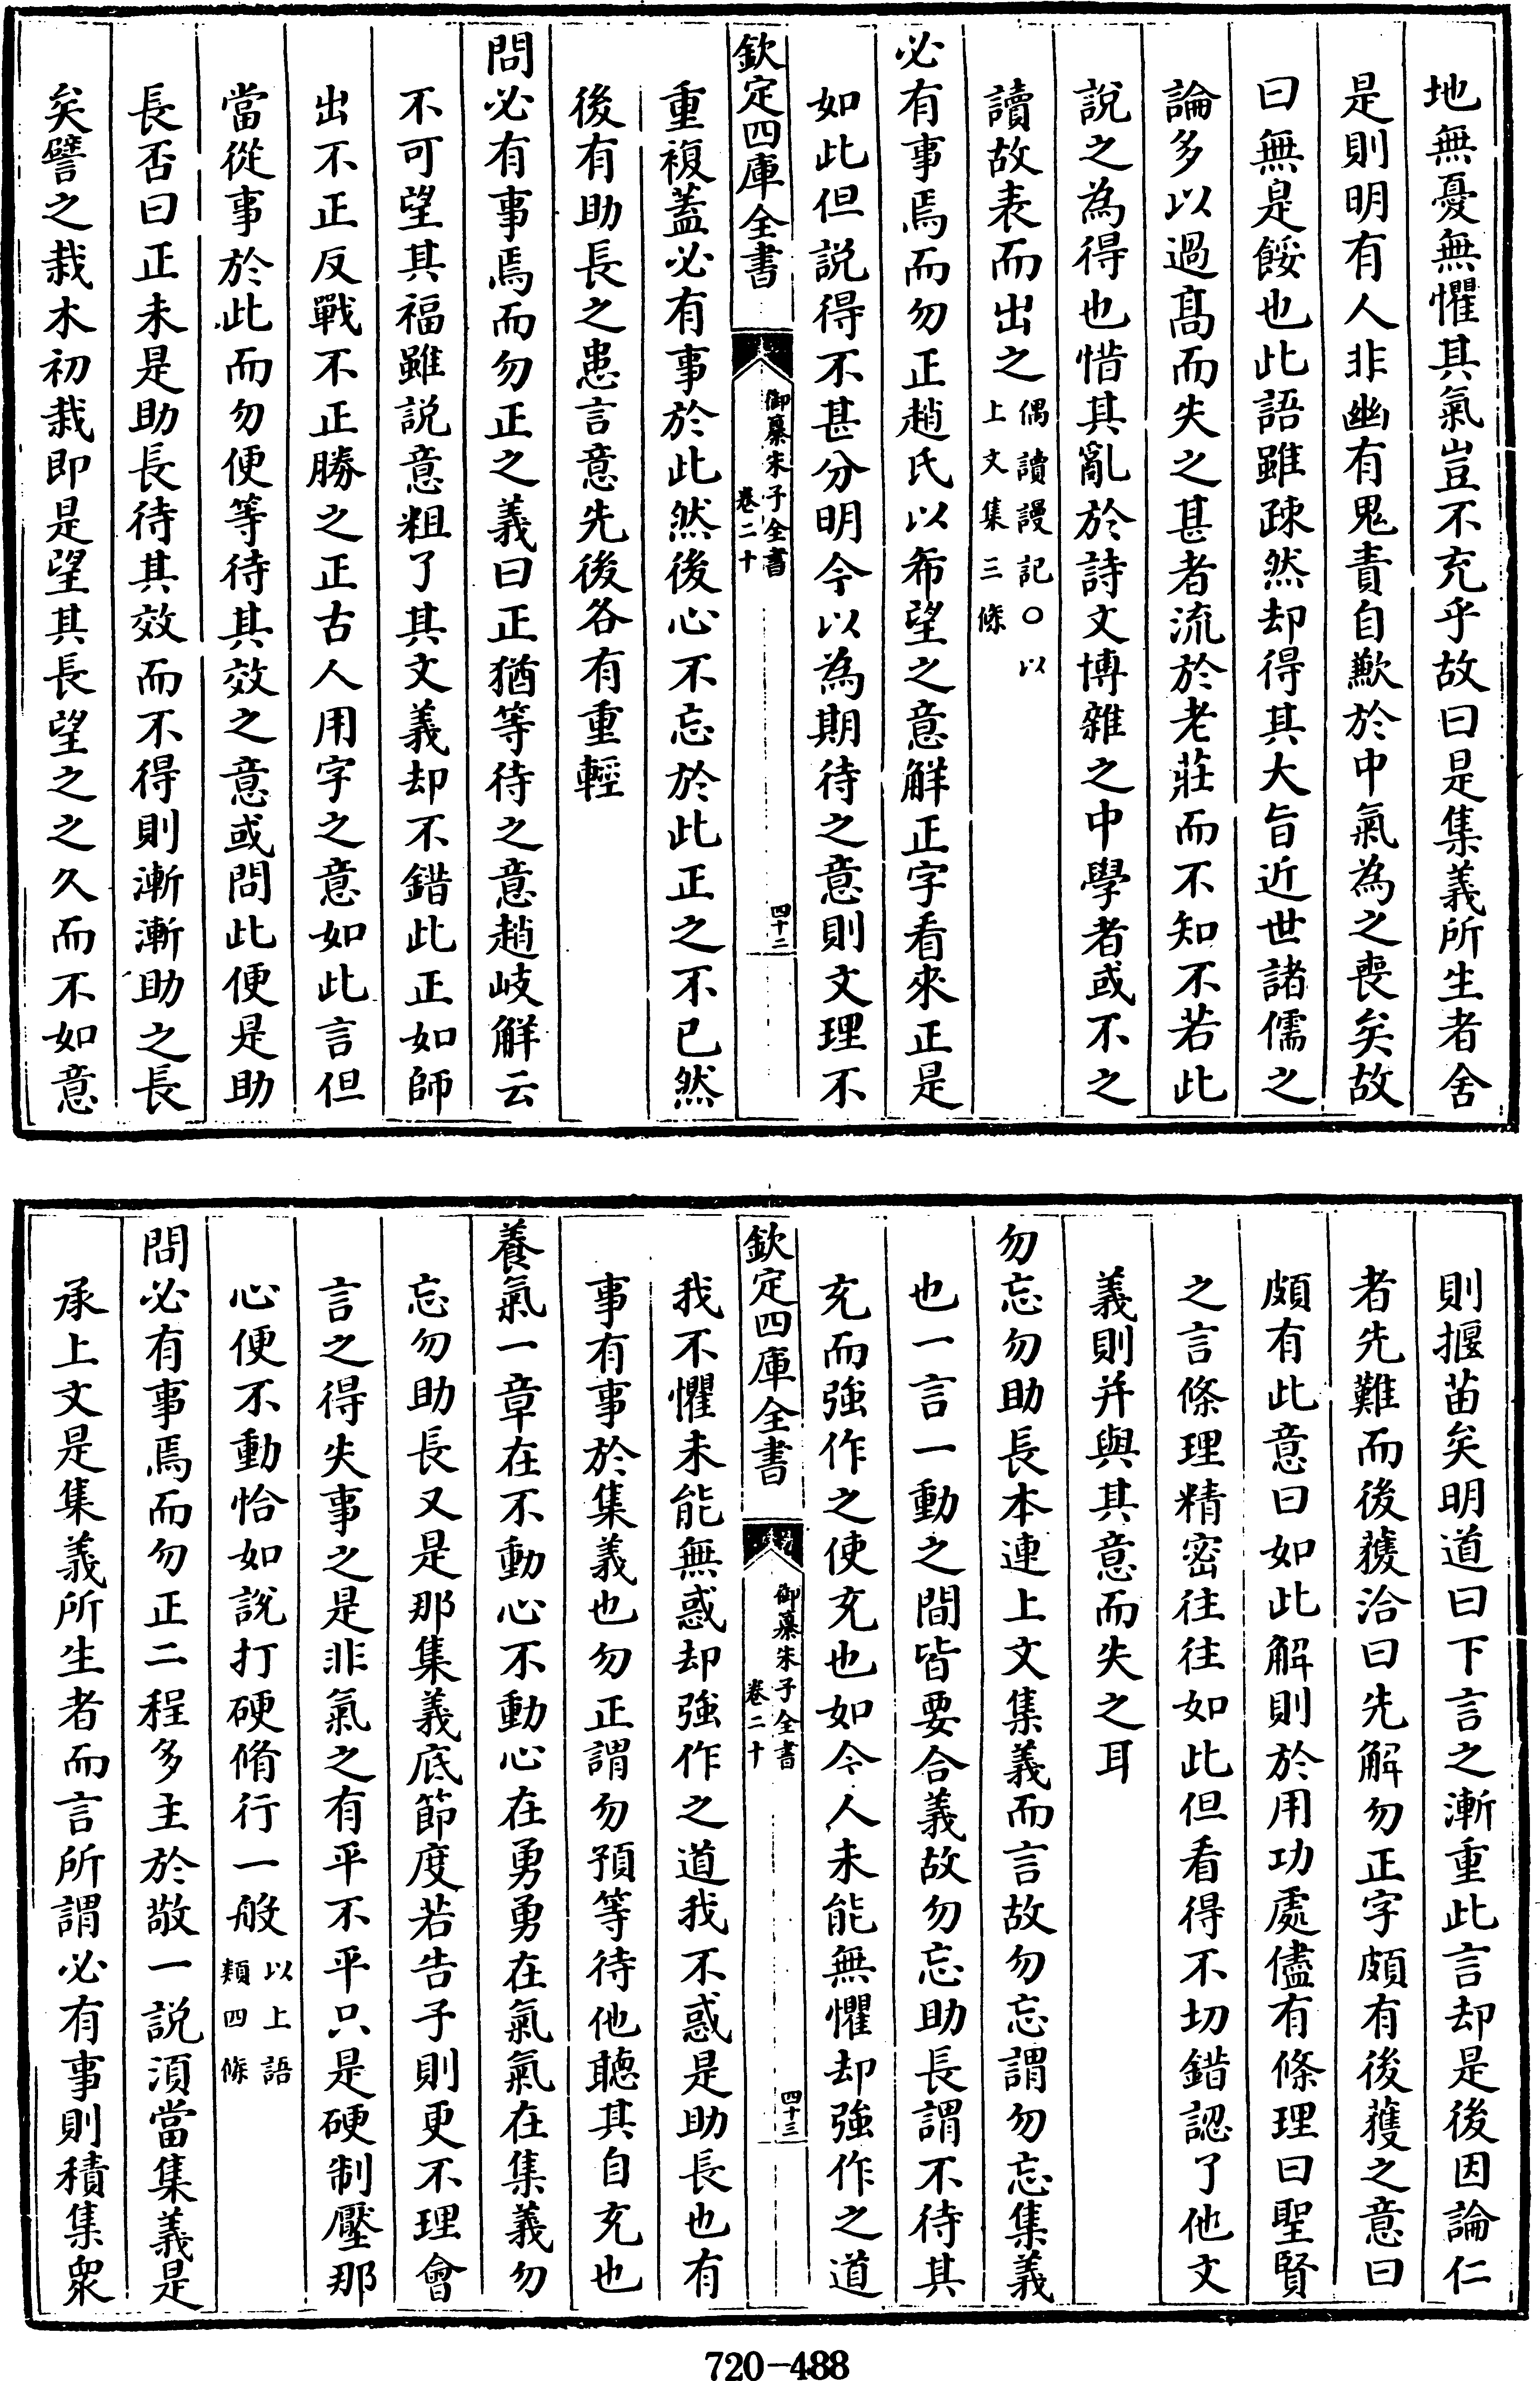 地無憂無懼其氣豈不充乎故曰是集義所生者舍
是則明有人非幽有鬼責自歉於中氣為之喪矣故
曰無是餒也此語雖疎然却得其大旨近世諸儒之
論多以過髙而失之甚者流於老莊而不知不若此
說之為得也惜其亂於詩文博雜之中學者或不之
讀故表而出之偶讀謾記○以
上文集三條
必有事焉而勿正趙氏以希望之意解正字看來正是
如此但説得不甚分明今以為期待之意則文理不
欽定四庫全書
御纂朱子全書
卷二十
四十二
重複蓋必有事於此然後心不忘於此正之不已然
後有助長之患言意先後各有重輕
問必有事焉而勿正之義曰正猶等待之意趙岐解云
不可望其福雖説意粗了其文義却不錯此正如師
出不正反戰不正勝之正古人用字之意如此言但
當從事於此而勿便等待其效之意或問此便是助
長否曰正未是助長待其效而不得則漸漸助之長
矣譬之栽木初栽即是望其長望之之久而不如意
則揠苗矣明道曰下言之漸重此言却是後因論仁
者先難而後獲洽曰先解勿正字頗有後獲之意曰
頗有此意曰如此解則於用功處儘有條理曰聖賢
之言條理精密往往如此但看得不切錯認了他文
義則并與其意而失之耳
勿忘勿助長本連上文集義而言故勿忘謂勿忘集義
也一言一動之間皆要合義故勿忘助長謂不待其
充而強作之使充也如今人未能無懼却強作之道
欽定四庫全書
御纂朱子全書
卷二十
四十三
我不懼未能無惑却強作之道我不惑是助長也有
事有事於集義也勿正謂勿預等待他聽其自充也
養氣一章在不動心不動心在勇勇在氣氣在集義勿
忘勿助長又是那集義底節度若告子則更不理會
言之得失事之是非氣之有平不平只是硬制壓那
心便不動恰如説打硬脩行一般以上語
類四條
問必有事焉而勿正二程多主於敬一説須當集義是
承上文是集義所生者而言所謂必有事則積集衆
720-488